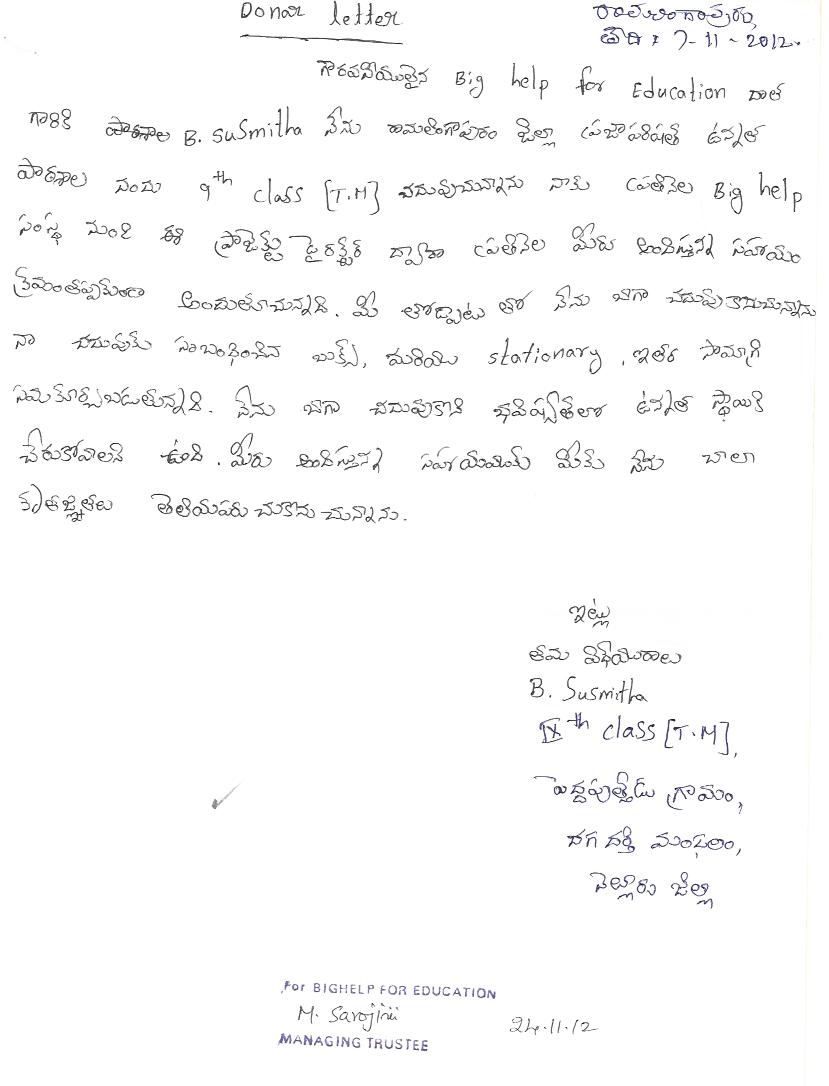 Donar letter
రామలింగాపురం,
తేది : 7-11-2012.
గౌరవనీయులైన Big help for Education దాత
గారికి పాఠశాల B. Susmitha నేను రామలింగాపురం జిల్లా ప్రజాపరిషత్ ఉన్నత
పాఠశాల నందు 9th class [T.M] చదువుచున్నాను నాకు ప్రతినెల Big help
సంస్థ నుంచి ఈ ప్రాజెక్టు డైరక్టర్ ద్వారా ప్రతినెల మీరు అందిస్తున్న సహాయం
క్రమంతప్పకుండా అందుతూచున్నది. మీ తోడ్పాటు తో నేను బాగా చదువుకొనుచున్నాను
నా చదువుకు సంబంధించిన బుక్స్, మరియు stationary, ఇతర సామాగ్రి
సమకూర్చబడుతున్నది. నేను బాగా చదువుకొని భవిష్యత్‌లో ఉన్నత స్థాయికి
చేరుకోవాలని ఉంది. మీరు అందిస్తున్న సహాయమునకు మీకు నేను చాలా
కృతజ్ఞతలు తెలియపరుచుకొనుచున్నాను.
ఇట్లు
తమ విధేయురాలు
B. Susmitha
IXth class [T.M],
పెద్దపుత్తేడు గ్రామం,
దగదర్తి మండలం,
నెల్లూరు జిల్లా
For BIGHELP FOR EDUCATION
M. Sarojini
24.11.12
MANAGING TRUSTEE